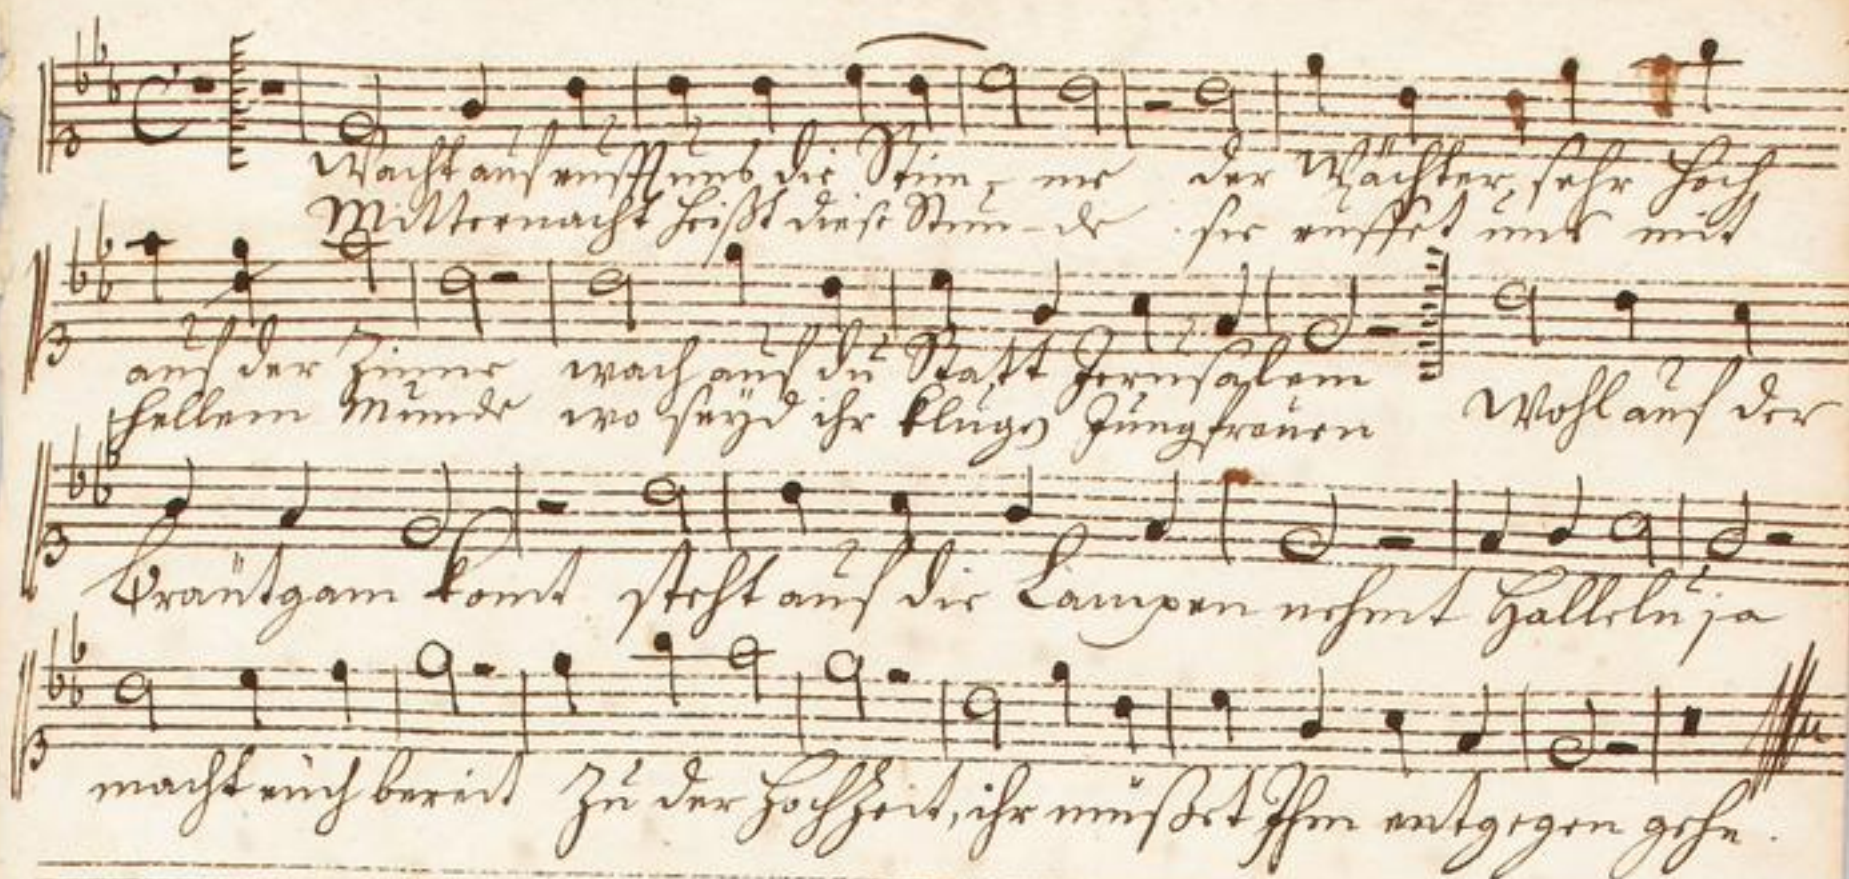 Wacht auf rufft uns die Stim- me der Wächter, sehr hoch
Mitternacht heißt diese Stun- de sie ruffet uns mit
auf der Zinne wach auf du Statt Jerusalem
hellem Munde wo seyd ihr kluge Jungfrauen Wohl auf der
Bräutgam komt steht auf die Lampen nehmt Halleluja
macht euch bereit Zu der HochZeit, ihr müßet Ihm entgegen gehn.